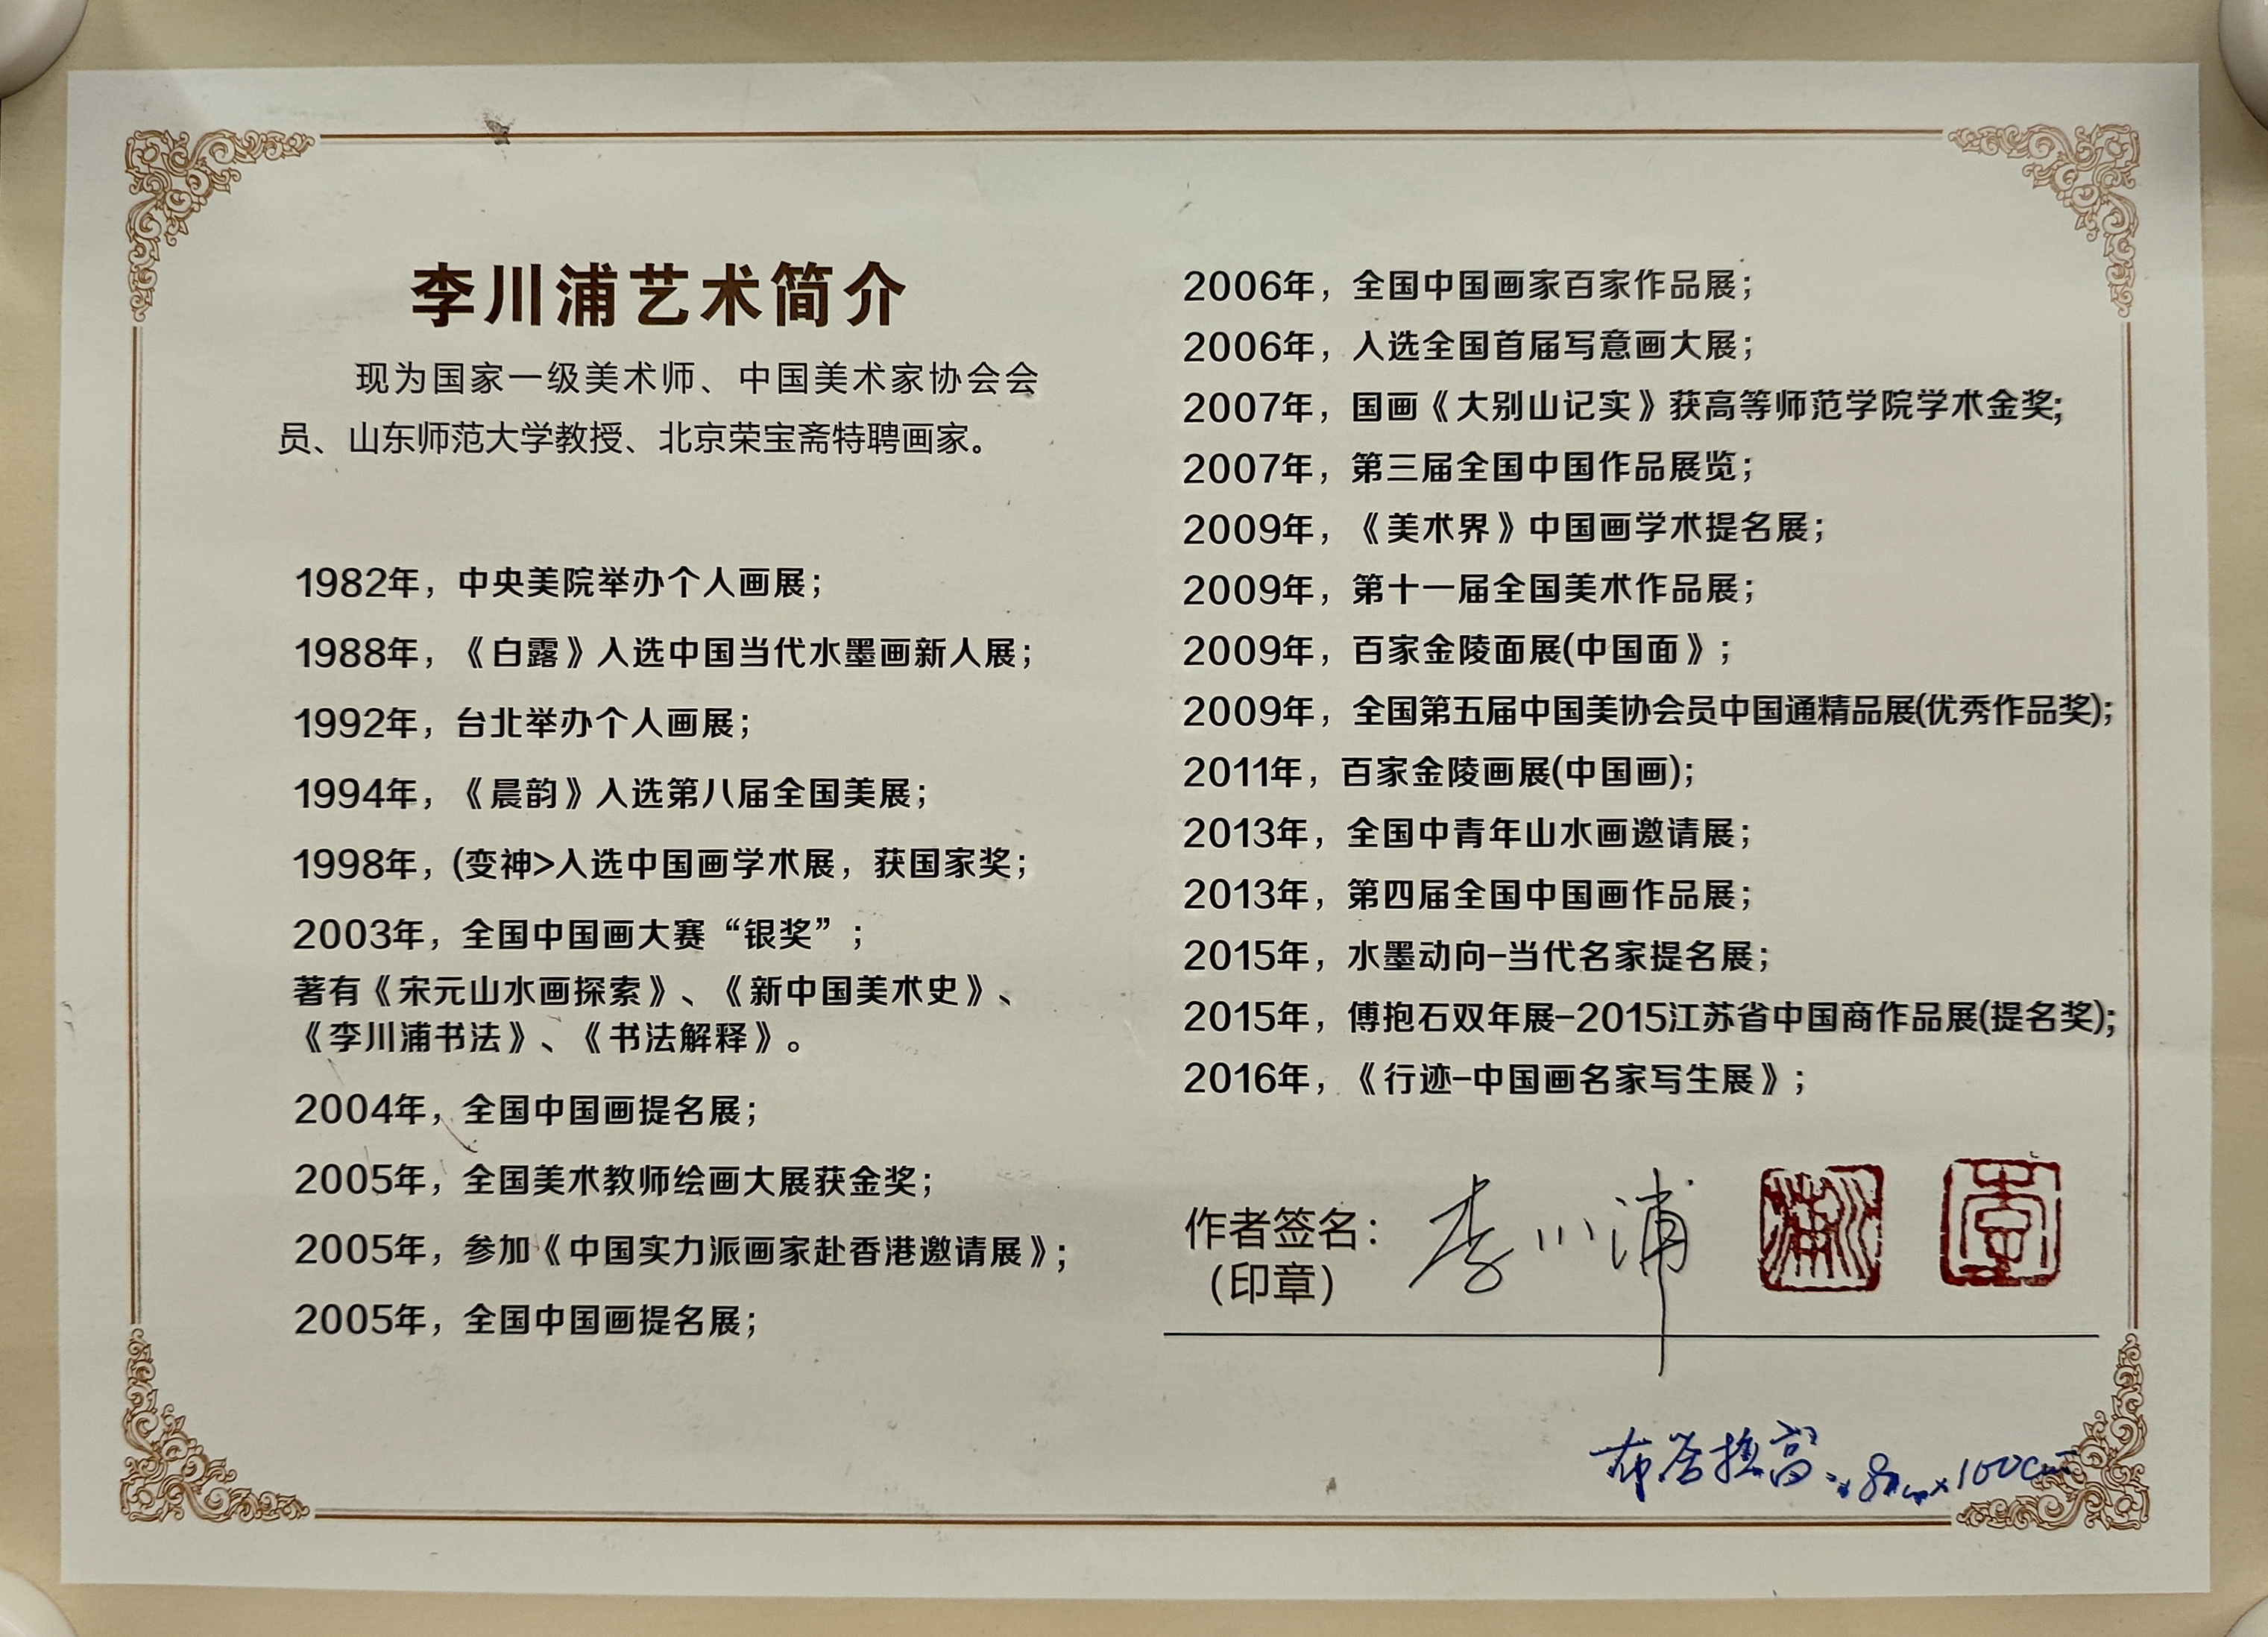 李川浦艺术简介
现为国家一级美术师、中国美术家协会会
员、山东师范大学教授、北京荣宝斋特聘画家。
1982年，中央美院举办个人画展；
1988年，《白露》入选中国当代水墨画新人展；
1992年，台北举办个人画展；
1994年，《晨韵》入选第八届全国美展；
1998年，(变神>入选中国画学术展，获国家奖；
2003年，全国中国画大赛“银奖”；
著有《宋元山水画探索》、《新中国美术史》、
《李川浦书法》、《书法解释》。
2004年，全国中国画提名展；
2005年，全国美术教师绘画大展获金奖；
2005年，参加《中国实力派画家赴香港邀请展》；
2005年，全国中国画提名展；
2006年，全国中国画家百家作品展；
2006年，入选全国首届写意画大展；
2007年，国画《大别山记实》获高等师范学院学术金奖；
2007年，第三届全国中国作品展览；
2009年，《美术界》中国画学术提名展；
2009年，第十一届全国美术作品展；
2009年，百家金陵面展(中国面》；
2009年，全国第五届中国美协会员中国通精品展(优秀作品奖)；
2011年，百家金陵画展(中国画)；
2013年，全国中青年山水画邀请展；
2013年，第四届全国中国画作品展；
2015年，水墨动向-当代名家提名展；
2015年，傅抱石双年展-2015江苏省中国商作品展(提名奖)；
2016年，《行迹-中国画名家写生展》；
作者签名：李川浦
（印章）
川浦 李
高 x100cm